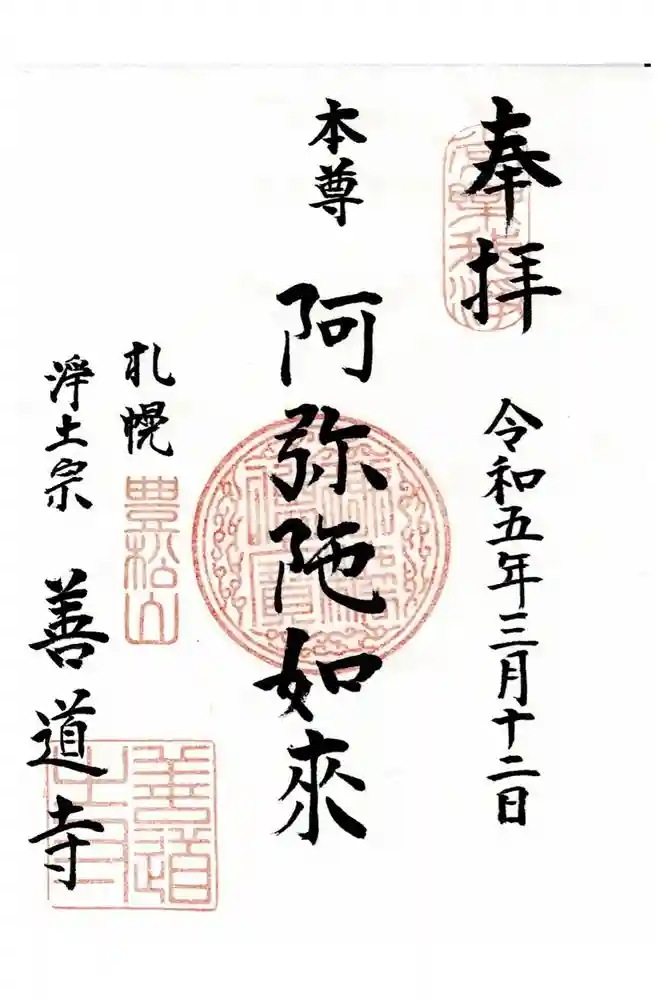 奉拝
令和五年三月十二日
本尊
阿弥陀如來
札幌
豊松山
浄土宗
善道寺
善道寺